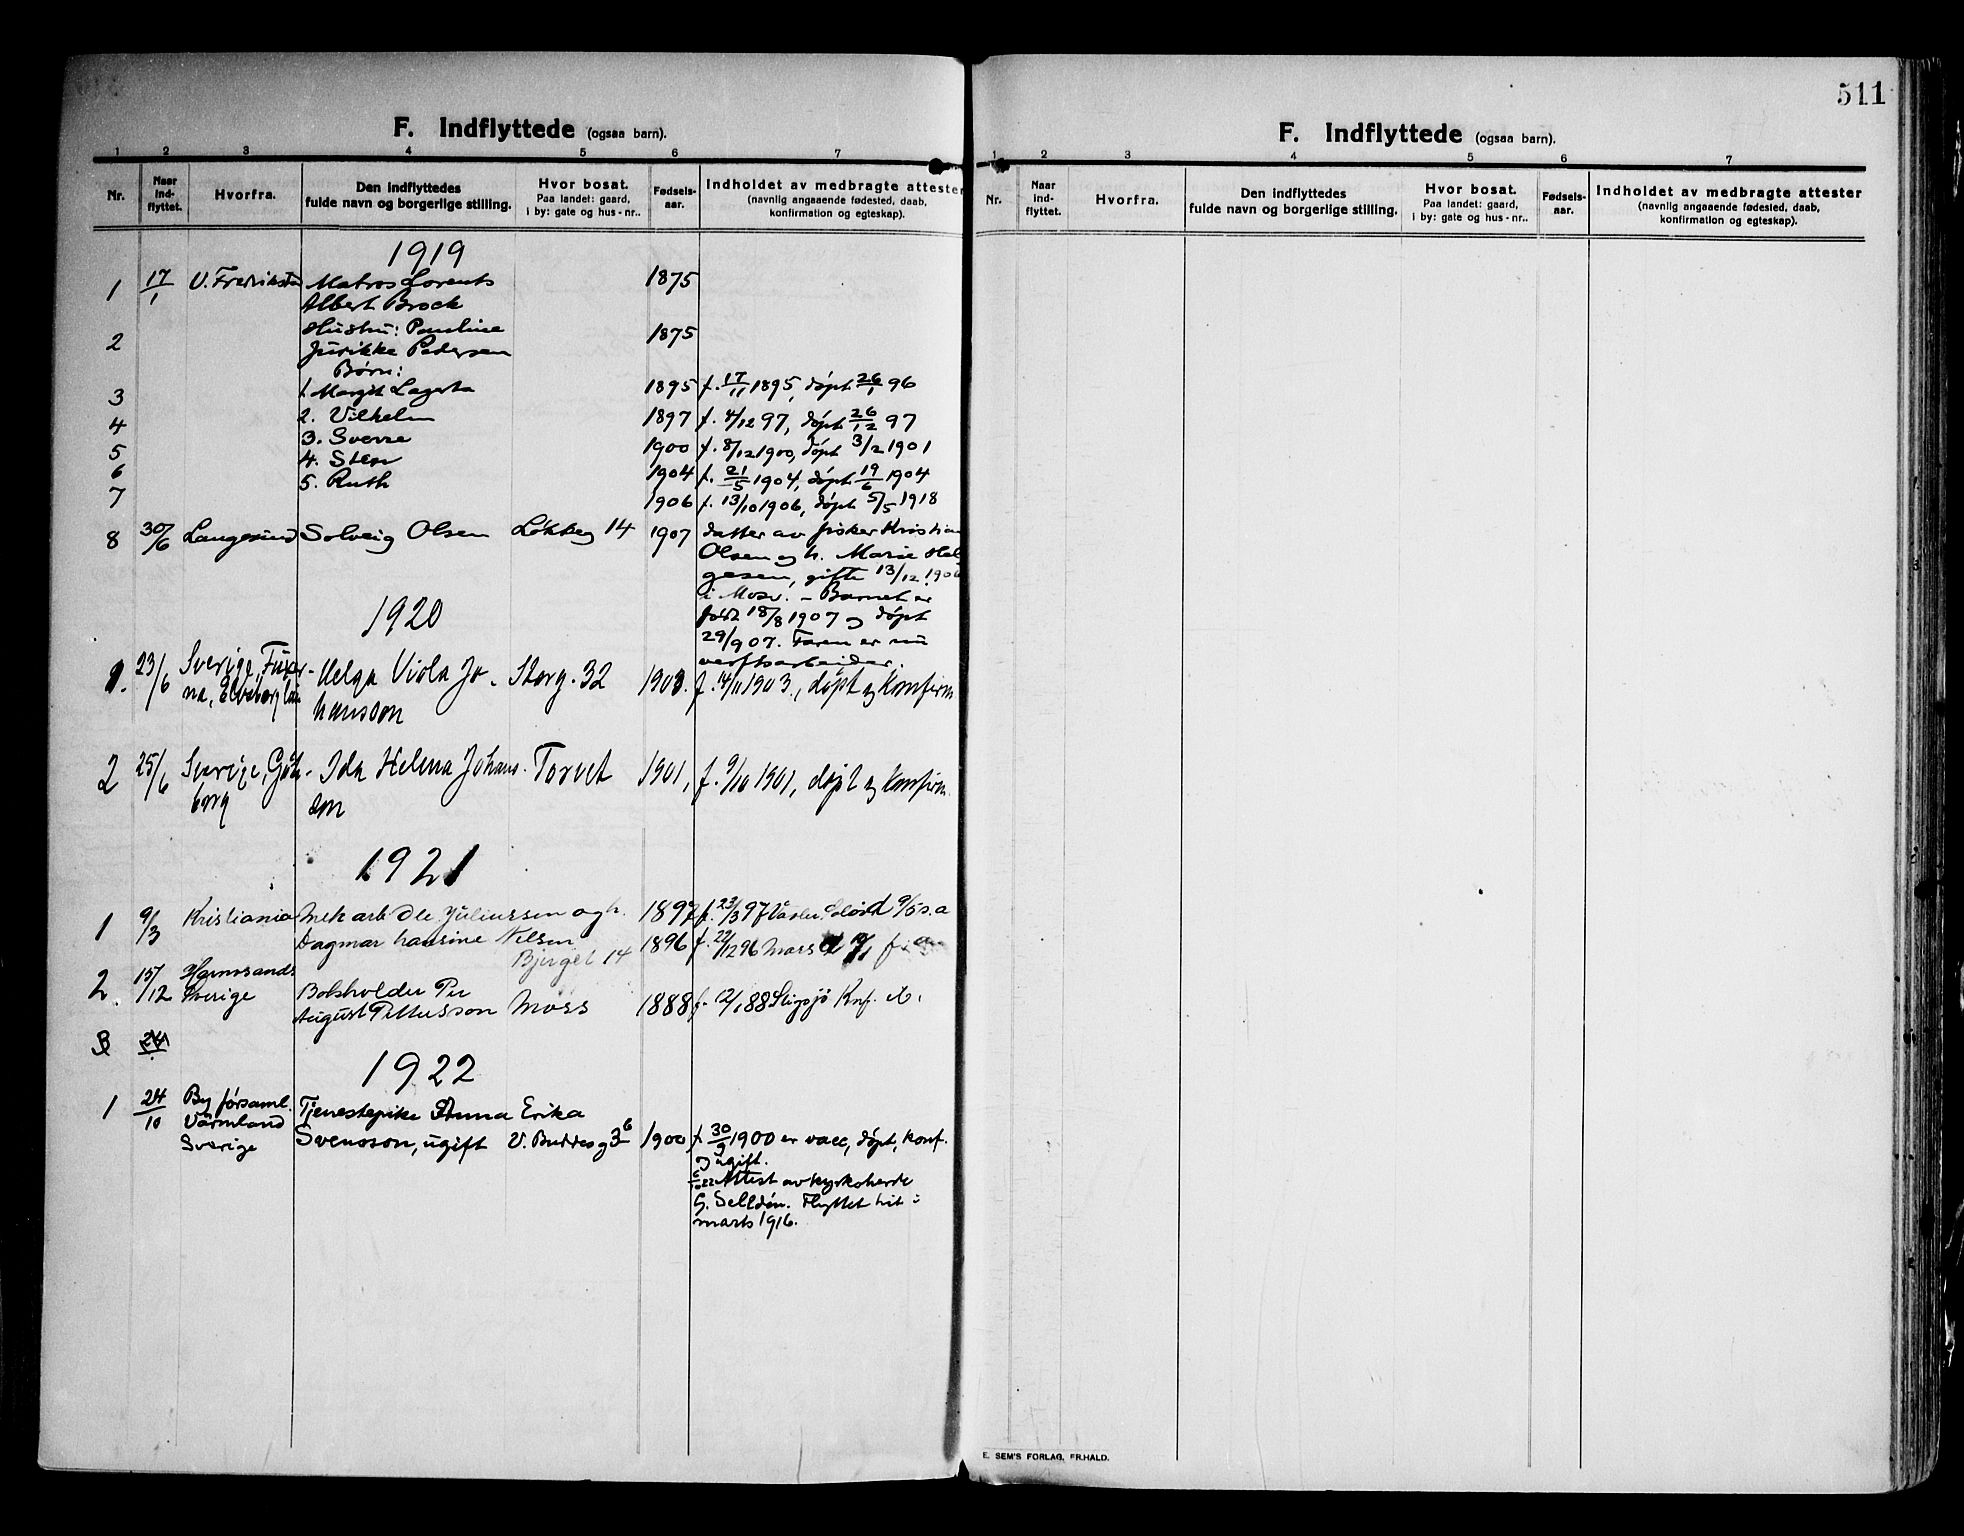 F. Indflyttede (ogsaa barn).
1 2 3 4 5 6 7
Nr. Naar ind-flyttet. Hvorfra. Den indflyttedes fulde navn og borgerlige stilling. Hvor bosat. Paa landet: gaard, i by: gate og hus-nr.. Fødsels-aar. Indholdet av medbragte attester (navnlig angaaende fødested, daab, konfirmation og egteskap).
1919
1 17/1 V. Fredriksta Matros Lorents 1875
Albert Brock
2 Hustru: Pauline 1875
Jurikke Pedersen
Børn:
3 1. Margit Lagerta 1895 f. 17/11 1895, døpt 26/1 96
4 2. Vilhelm 1897 f. 4/12 97, døpt 26/12 97
5 3. Sverre 1900 f. 8/12 1900, døpt 3/2 1901
6 4. Sten 1904 f. 21/5 1904, døpt 19/6 1904
7 5. Ruth 1906 f. 13/10 1906, døpt 5/5 1918
8 30/6 Langesund Solveig Olsen Løkkeg 14 1907 datter av fisker Kristian
Olsen og h. Marie Hel
gesen, gifte 13/12 1906
i Moss. - Barnet er
født 18/8 1907 og døpt
29/9 07. Faren er nu
verftsarbeider.
1920
1. 23/6 Sverige, - Helga Viola Jo- Storg. 32 1903. f. 14/11 1903., døpt og konfirm
na, Elvsborg län hansson
2 25/6 Sverige, Göte- Ida Helena Johans- Torvet 1901, f. 9/10 1901, døpt og konfirm.
borg son
1921
1 9/3 Kristiania Mek arb Ole Juliussen og h. 1897 f. 23/3 97 Vaaler. Solør D 9/5 s.a
Dagmar Hansine Nilsen 1896 f. 22/12 96 Moss
Bjerget 14
2. 15/12 Hernosands
Sverige Bokholder Per
August Pettersson Moss 1888 f. 12/1 88 Stigsjö Knf.
3 24
1922
1 24/10 By førsaml.
Värmland Tjenestepike Anna Erika
Sverige Svensson, ugift V. Buddesg 36 1900 f 30/9 1900 er vacc, døpt, konf.
og ugift.
Attest av kyrkoherde
G. Selldén. Flyttet hit i
marts 1916.
511
F. Indflyttede (ogsaa barn).
1 2 3 4 5 6 7
Nr. Naar ind-flyttet. Hvorfra. Den indflyttedes fulde navn og borgerlige stilling. Hvor bosat. Paa landet: gaard, i by: gate og hus-nr.. Fødsels-aar. Indholdet av medbragte attester (navnlig angaaende fødested, daab, konfirmation og egteskap).
E. SEM'S FORLAG, FR.HALD.